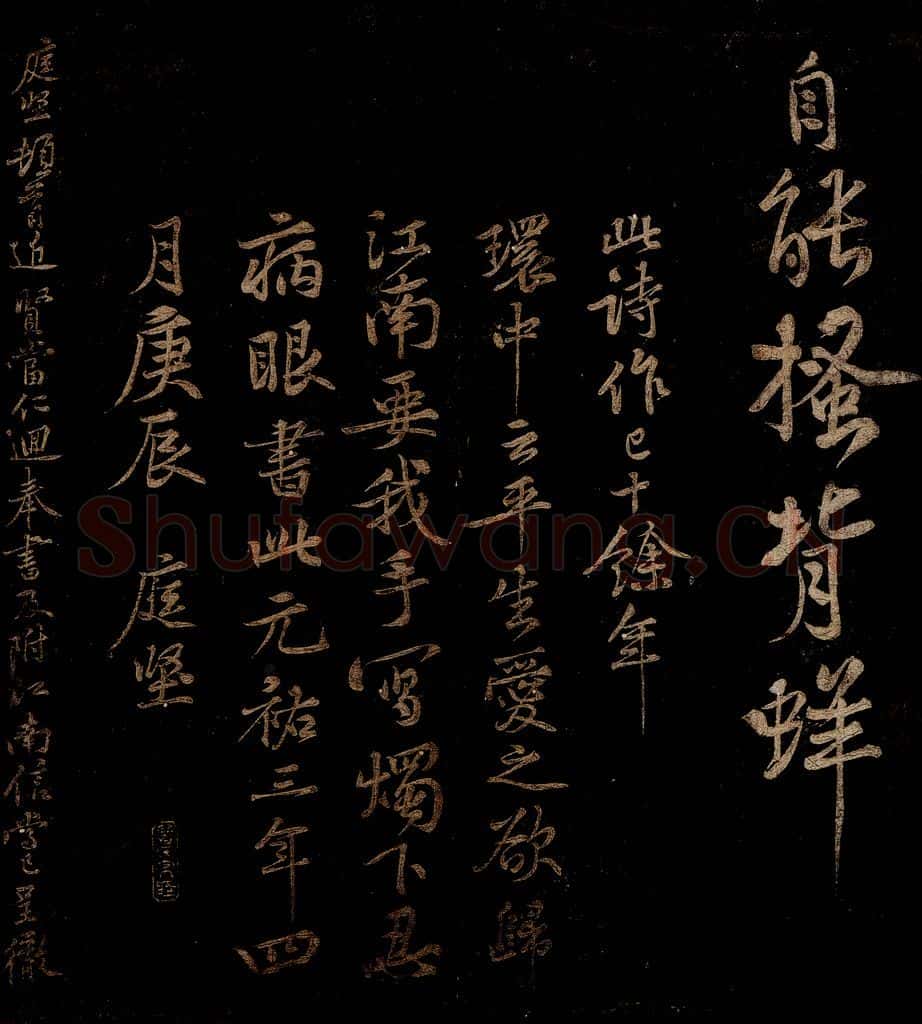 自能搔背蛘
此詩作已十餘年
環中云平生愛之欲歸
江南要我手寫燭下忍
病眼書此元祐三年四
月庚辰 庭堅
庭堅頓首近賢當仁迴奉書及附江南信當已呈徹
Shufawang.CN